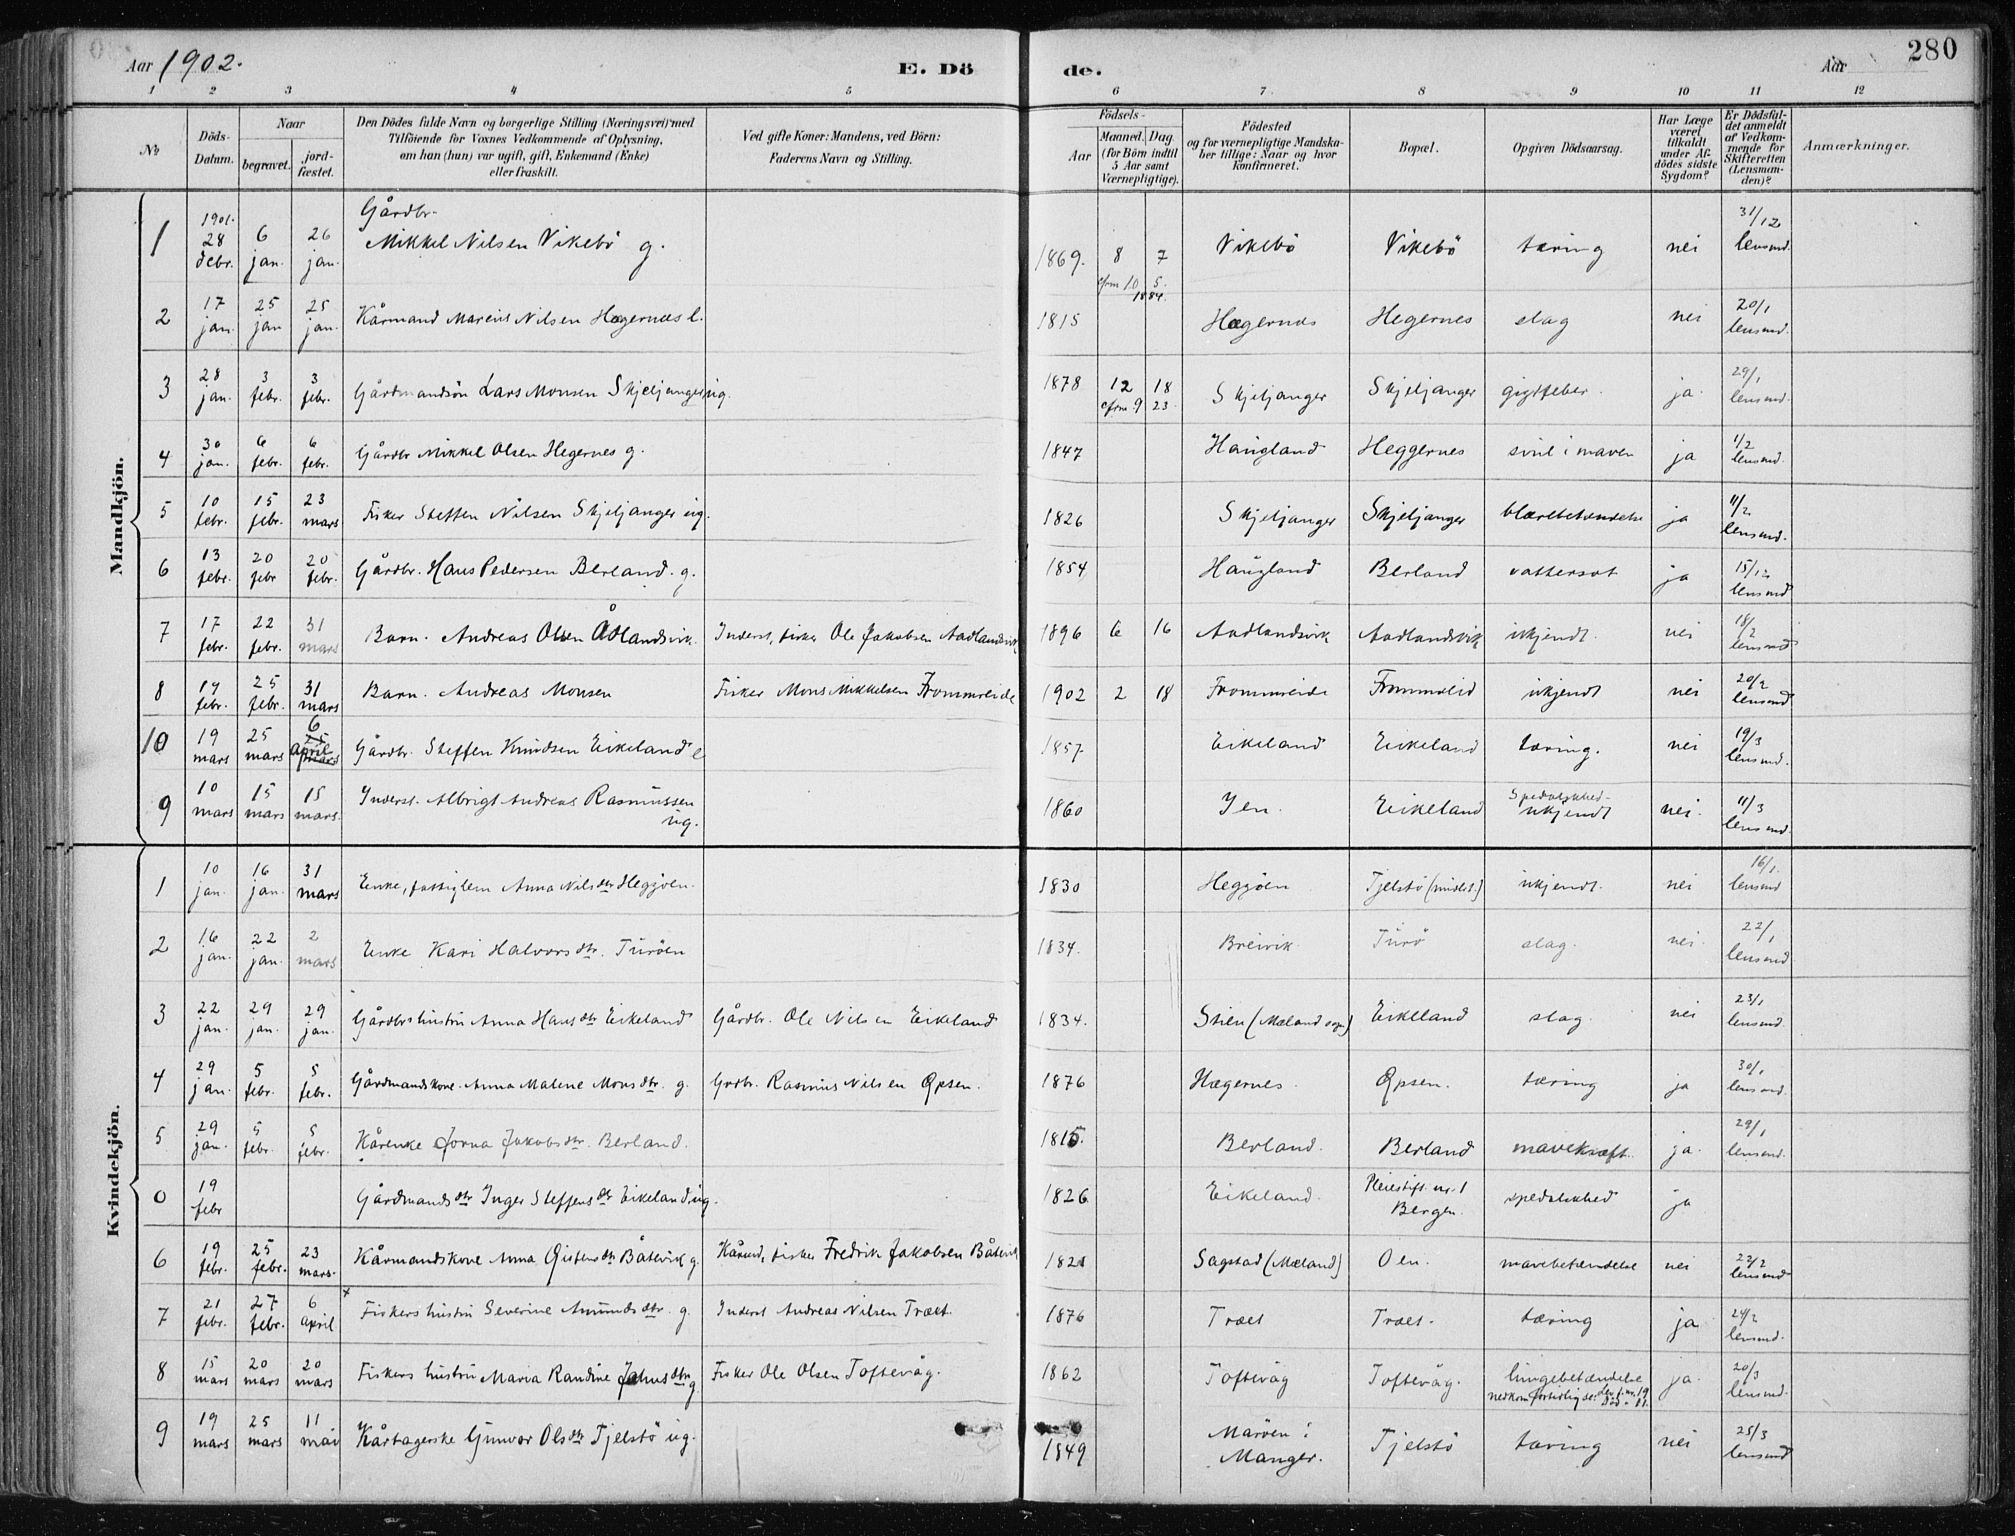 Aar 1902. E. Dö de. Aar 280
1 2 3 4 5 6 7 8 9 10 11 12
№ Döds-Datum. Naar begravet. jord-fæstet. Den Dödes fulde Navn og borgerlige Stilling (Næringsvei) med Tilföiende for Voxnes Vedkommende af Oplysning, om han (hun) var ugift, gift, Enkemand (Enke) eller fraskilt. Ved gifte Koner: Mandens, ved Börn: Faderens Navn og Stilling. Födsels- Aar Maaned. Dag. (for Börn indtil 5 Aar samt Værnepligtige). Födested og for værnepligtige Mandskaber tillige: Naar og hvor Konfirmeret. Bopæl. Opgiven Dödsaarsag. Har Læge været tilkaldt under Afdödes sidste Sygdom? Er Dödsfaldet anmeldt af Vedkommende for Skifteretten (Lensmanden)? Anmærkninger.
Mandkjön.
1 1901. 28 debr. 6 jan. 26 jan. Gårdbr. Mikkel Nilsen Vikebö g. 1869. 8 7 cfrm 10 5. 1884. Vikebö Vikebö tæring nei 31/12 lensmd.
2 17 jan. 25 jan 25 jan. Kårmand Marius Nilsen Hægernæs l. 1815 Hægernæs Hegernes slag nei 20/1 lensmd.
3 28 jan. 3 febr. 3 febr. Gårdmandsön Lars Monsen Skjeljanger ug. 1878 12 18 cfrm 9 23. Skjeljanger Skjeljanger gigtfeber. ja. 29/1 lensmd.
4 30 jan. 6 febr. 6 febr. Gårdbr Mikkel Olsen Hegernes g. 1847 Haugland Heggernes svul i maven ja 1/2 lensmd.
5 10 febr. 15 febr. 23 mars Fisker Steffen Nilsen Skjeljanger ug. 1826 Skjeljanger Skjeljanger blærebetændelse ja 11/2 lensmd.
6 13 febr. 20 febr 20 febr. Gårdbr. Hans Pedersen Berland. g. 1854 Haugland Berland vattersot ja 15/12 lensmd
7 17 febr. 22 febr. 31 mars Barn. Andreas Olsen Ådlandsvik. Inderst, fisker Ole Jakobsen Aadlandsvik 1896 6 16 Aadlandsvik Aadlandsvik ukjendt. nei 18/2 lensmd
8 19 febr. 25 febr. 31 mars Barn. Andreas Monsen Fisker Mons Mikkelsen Frommreide 1902 2 18 Frommreide Frommreid ukjendt nei 20/2 lensmd
10 19 mars 25 mars 6 april Gårdbr. Steffen Knudsen Eikeland e 1857 Eikeland Eikeland tæring. nei 19/3 lensmd.
9 10 mars 15 mars 15 mars. Inderst. Albrigt Andreas Rasmussen ug. 1860 Yen. Eikeland Spedalskhed ukjendt nei. 11/3 lensmd.
Kvindekjön.
1 10 jan. 16 jan. 31 mars Enke, fattiglem Anna Nilsdtr Heggöen. 1830 Heggöen Tjelstö (midlt.) ukjendt. nei 16/1. lensmd
2 16 jan. 22 jan. 2 mars Enke Kari Halvorsdtr. Turöen 1834. Breivik Turö slag. nei. 22/1 lensmd
3 22 jan. 29 jan. 29 jan. Gårdbrs hustru Anna Hansdtr Eikeland Gårdbr. Ole Nilsen Eikeland 1834. Stien (Mæland sogn) Eikeland slag. nei 23/1 lensmd.
4 29 jan. 5 febr. 5 febr. Gårdmandskone. Anna Malene Monsdtr. g. Grdbr. Rasmus Nilsen Opsen. 1876 Hægernes. Opsen. tæring ja 30/1 lensmd.
5 29 jan. 5 febr. 5 febr. Kårenke Jorna Jakobsdtr. Berland. 1815. Berland. Berland mavekræft. ja. 29/1 lensmd.
0 19 febr Gårdmandsdtr Inger Steffensdtr Eikeland ug. 1826 Eikeland. Pleiestift. nr. 1 Bergen. spedalskhed ja
6 19 febr. 25 febr. 23 mars. Kårmandskone Anna Båtevik g. Kårmd, fisker Fredrik Jakobsen Båtevik 1821 Sagstad (Mæland) Oen. mavebetændelse nei 22/2 lensmd
7 21 febr. 27 febr. 6 april Fiskers hustru Severine Amundsdtr. g. Inderst Andreas Nilsen Træet. 1876 Træet Træet. tæring ja 24/2 lensmd.
8 15 mars 20 mars 20 mars Fiskers hustru Maria Randine Johnsdtr g Fisker Ole Olsen Toftevåg. 1862 Toftevåg Toftevåg. lungebetændelse nedkom fortidlig ja. 20/3 lensmd.
9 19 mars 25 mars 11 mai Kårtagerske Gunvor Olsdtr Tjelstö ug. 1849 Maröen i Manger. Tjelstö tæring nei 25/3 lensmd